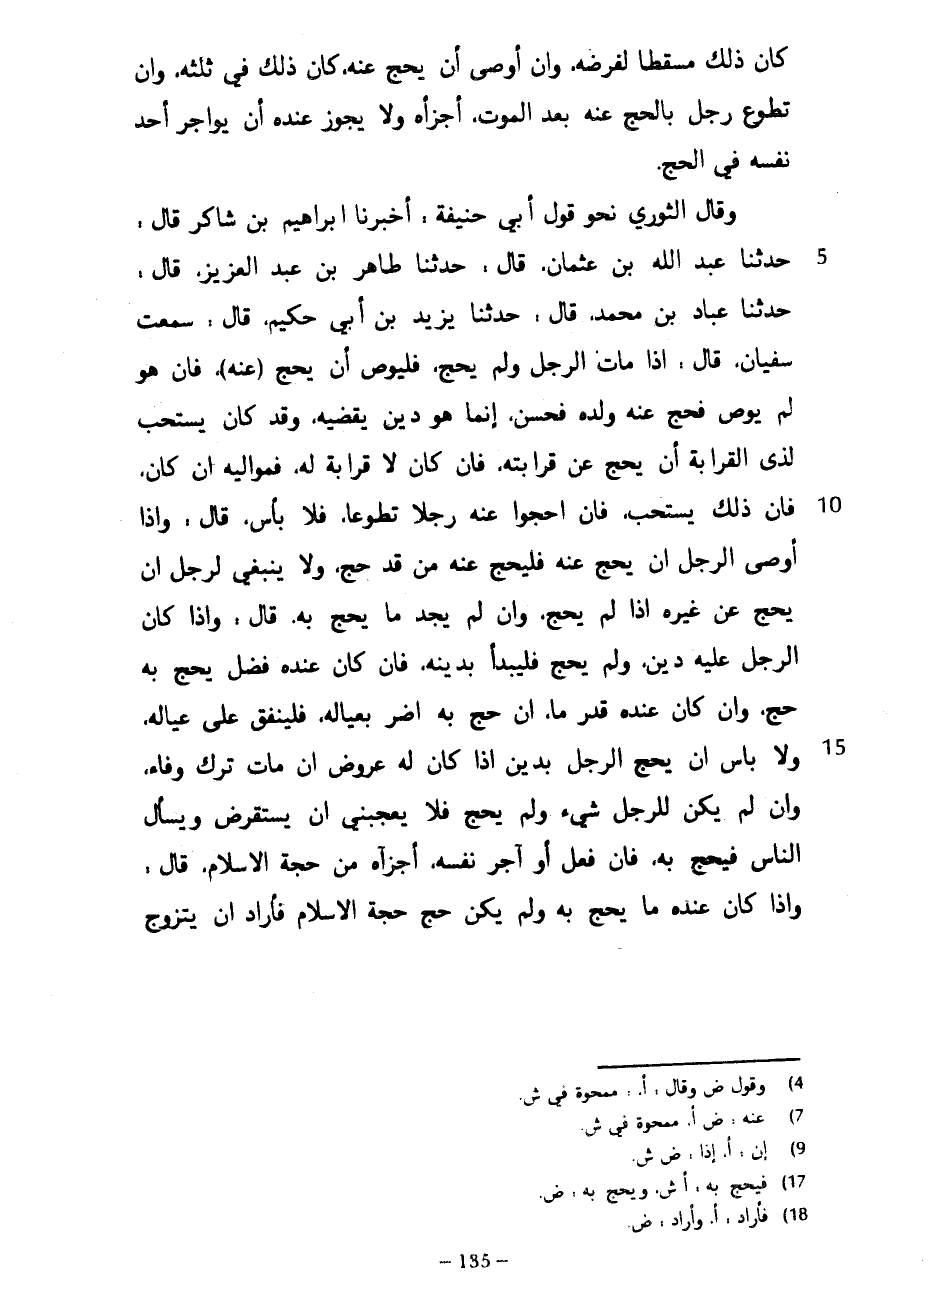 كان ذلك مسقطا لفرضه، وان أوصى أن يحج عنه، كان ذلك في ثلثه، وان
تطوع رجل بالحج عنه بعد الموت، أجزأه ولا يجوز عنده أن يواجر أحد
نفسه في الحج.
وقال الثوري نحو قول أبي حنيفة : أخبرنا ابراهيم بن شاكر قال :
حدثنا عبد الله بن عثمان، قال : حدثنا طاهر بن عبد العزيز، قال : 5
حدثنا عباد بن محمد، قال : حدثنا يزيد بن أبي حكيم، قال : سمعت
سفيان، قال : اذا مات الرجل ولم يحج، فليوص أن يحج (عنه)، فان هو
لم يوص فحج عنه ولده فحسن، إنما هو دين يقضيه، وقد كان يستحب
لذى القرابة أن يحج عن قرابته، فان كان لا قرابة له، فمواليه ان كان،
فان ذلك يستحب، فان احجوا عنه رجلا تطوعا، فلا بأس، قال : واذا 10
أوصى الرجل ان يحج عنه فليحج عنه من قد حج، ولا ينبغي لرجل ان
يحج عن غيره اذا لم يحج، وان لم يجد ما يحج به، قال : واذا كان
الرجل عليه دين، ولم يحج فليبدأ بدينه، فان كان عنده فضل يحج به
حج، وان كان عنده قدر ما، ان حج به اضر بعياله، فلينفق على عياله،
ولا باس ان يحج الرجل بدين اذا كان له عروض ان مات ترك وفاء، 15
وان لم يكن للرجل شيء ولم يحج فلا يعجبني ان يستقرض ويسأل
الناس فيحج به، فان فعل أو آجر نفسه، أجزآه من حجة الاسلام، قال :
واذا كان عنده ما يحج به ولم يكن حج حجة الاسلام فأراد ان يتزوج
4) وقول ض وقال : أ. : ممحوة في ش.
7) عنه : ض أ، ممحوة في ش.
9) إن : أ، إذا : ض ش.
17) فيحج به : أ ش، ويحج به : ض.
18) فأراد : أ، وأراد : ض.
– 135 –